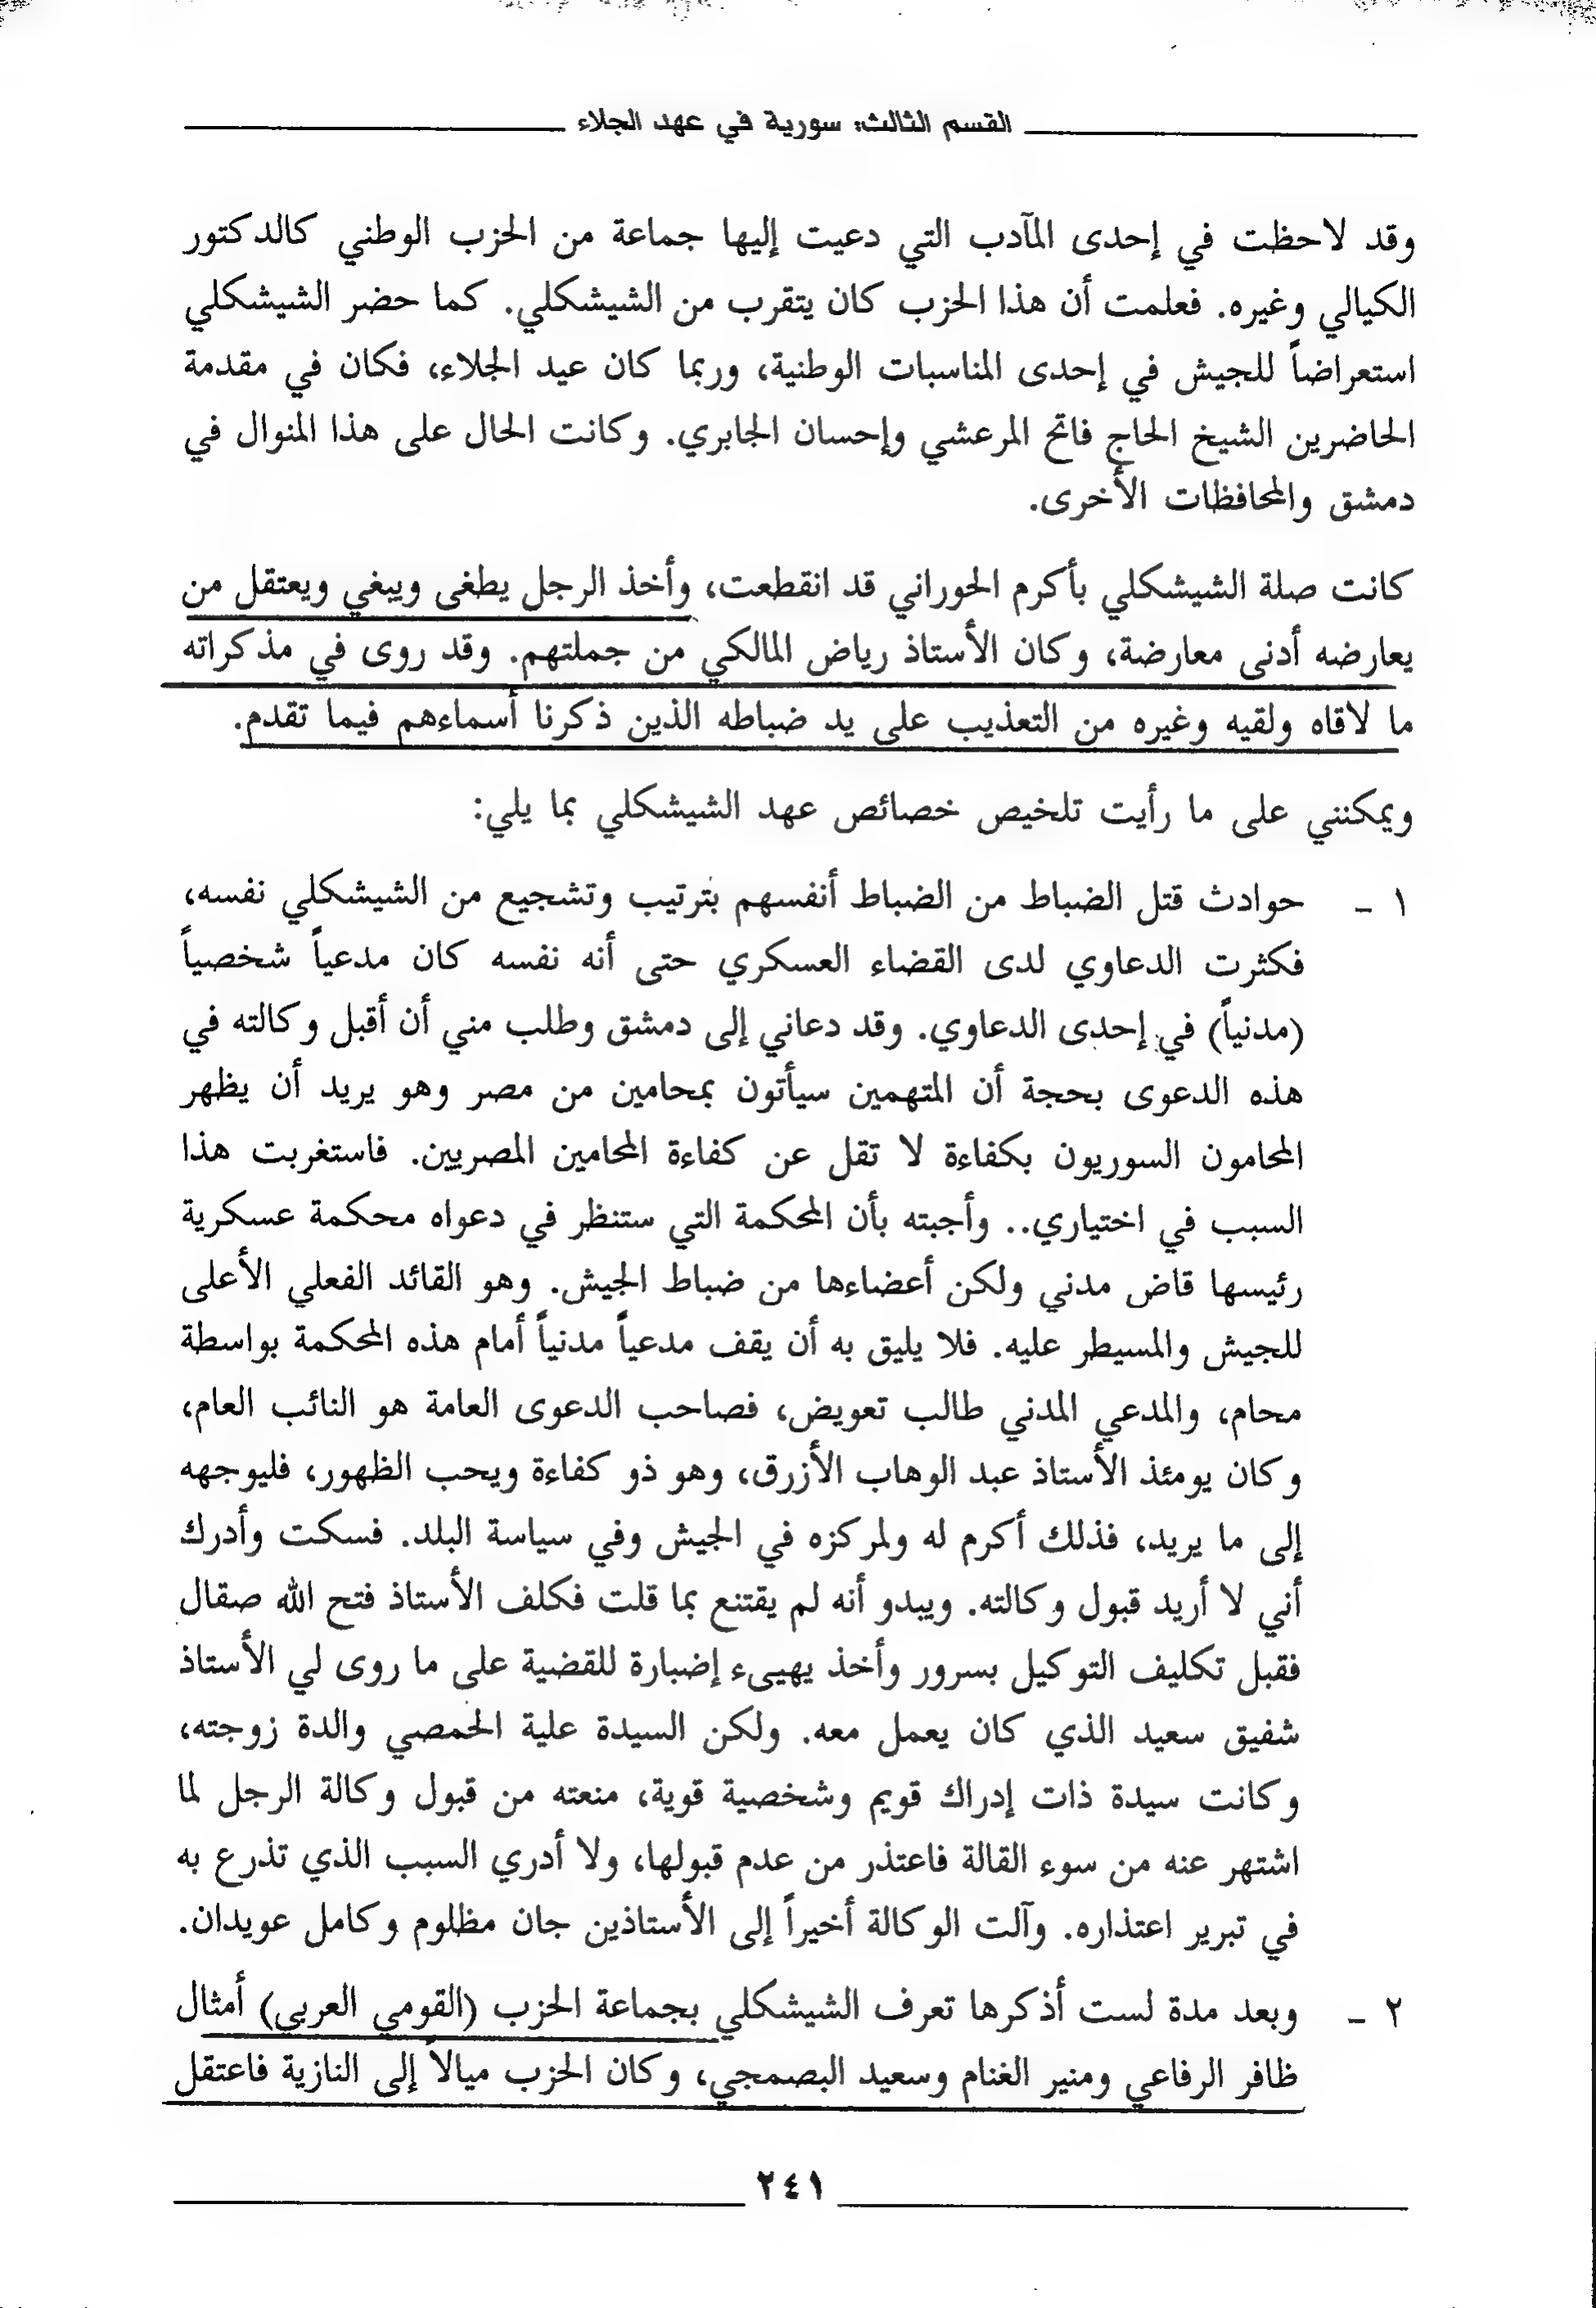 القسم الثالث: سورية في عهد الجلاء
وقد لاحظت في إحدى المآدب التي دعيت إليها جماعة من الحزب الوطني كالدكتور
الكيالي وغيره. فعلمت أن هذا الحزب كان يتقرب من الشيشكلي. كما حضر الشيشكلي
استعراضاً للجيش في إحدى المناسبات الوطنية، وربما كان عيد الجلاء، فكان في مقدمة
الحاضرين الشيخ الحاج فاتح المرعشي وإحسان الجابري. وكانت الحال على هذا المنوال في
دمشق والمحافظات الأخرى.
كانت صلة الشيشكلي بأكرم الحوراني قد انقطعت، وأخذ الرجل يطغى ويبغي ويعتقل من
يعارضه أدنى معارضة، وكان الأستاذ رياض المالكي من جملتهم. وقد روى في مذكراته
ما لاقاه ولقيه وغيره من التعذيب على يد ضباطه الذين ذكرنا أسماءهم فيما تقدم.
ويمكنني على ما رأيت تلخيص خصائص عهد الشيشكلي بما يلي:
١ - حوادث قتل الضباط من الضباط أنفسهم بترتيب وتشجيع من الشيشكلي نفسه،
فكثرت الدعاوي لدى القضاء العسكري حتى أنه نفسه كان مدعياً شخصياً
(مدنياً) في إحدى الدعاوي. وقد دعاني إلى دمشق وطلب مني أن أقبل وكالته في
هذه الدعوى بحجة أن المتهمين سيأتون بمحامين من مصر وهو يريد أن يظهر
المحامون السوريون بكفاءة لا تقل عن كفاءة المحامين المصريين. فاستغربت هذا
السبب في اختياري.. وأجبته بأن المحكمة التي ستنظر في دعواه محكمة عسكرية
رئيسها قاض مدني ولكن أعضاءها من ضباط الجيش. وهو القائد الفعلي الأعلى
للجيش والمسيطر عليه. فلا يليق به أن يقف مدعياً مدنياً أمام هذه المحكمة بواسطة
محام، والمدعي المدني طالب تعويض، فصاحب الدعوى العامة هو النائب العام،
وكان يومئذ الأستاذ عبد الوهاب الأزرق، وهو ذو كفاءة ويحب الظهور، فليوجهه
إلى ما يريد، فذلك أكرم له ولمركزه في الجيش وفي سياسة البلد. فسكت وأدرك
أني لا أريد قبول وكالته. ويبدو أنه لم يقتنع بما قلت فكلف الأستاذ فتح الله صقال
فقبل تكليف التوكيل بسرور وأخذ يهيىء إضبارة للقضية على ما روى لي الأستاذ
شفيق سعيد الذي كان يعمل معه. ولكن السيدة علية الحمصي والدة زوجته،
وكانت سيدة ذات إدراك قويم وشخصية قوية، منعته من قبول وكالة الرجل لما
اشتهر عنه من سوء القالة فاعتذر من عدم قبولها، ولا أدري السبب الذي تذرع به
في تبرير اعتذاره. وآلت الوكالة أخيراً إلى الأستاذين جان مظلوم وكامل عويدان.
٢ - وبعد مدة لست أذكرها تعرف الشيشكلي بجماعة الحزب (القومي العربي) أمثال
ظافر الرفاعي ومنير الغنام وسعيد البصمجي، وكان الحزب ميالاً إلى النازية فاعتقل
٢٤١